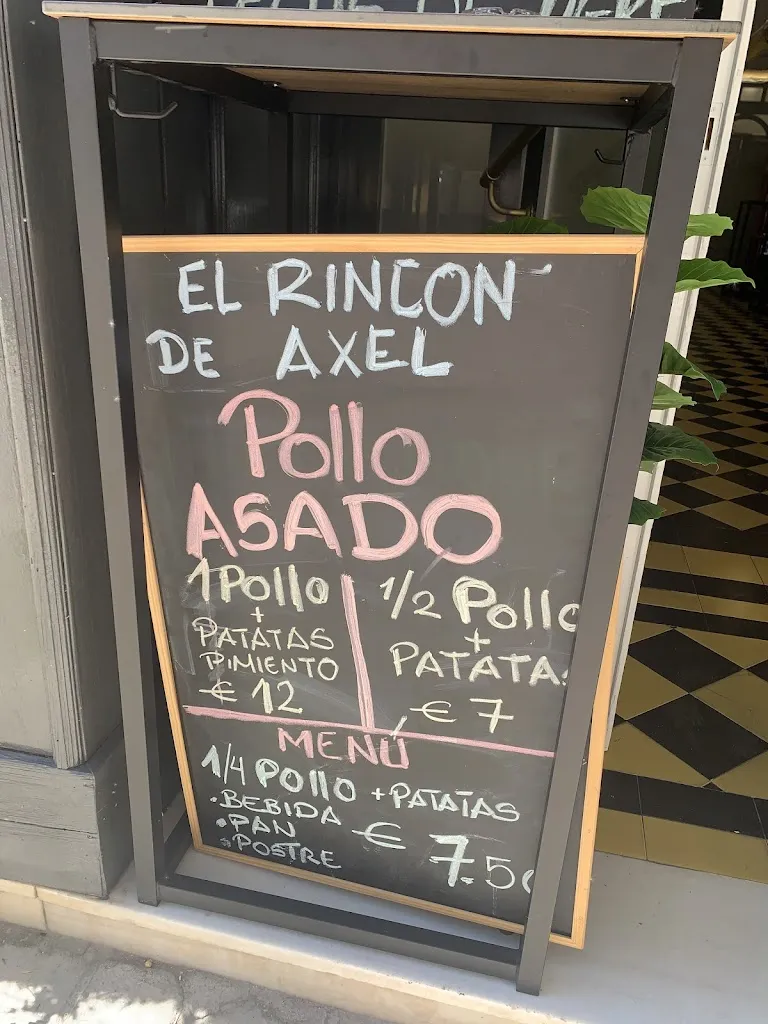 EL RINCON
DE AXEL
Pollo
ASADO
1 Pollo
+
PATATAS
PIMIENTO
€ 12
1/2 Pollo
+
PATATA
€ 7
MENÚ
1/4 POLLO + PATATAS
• BEBIDA
• PAN
• POSTRE
€ 7.50